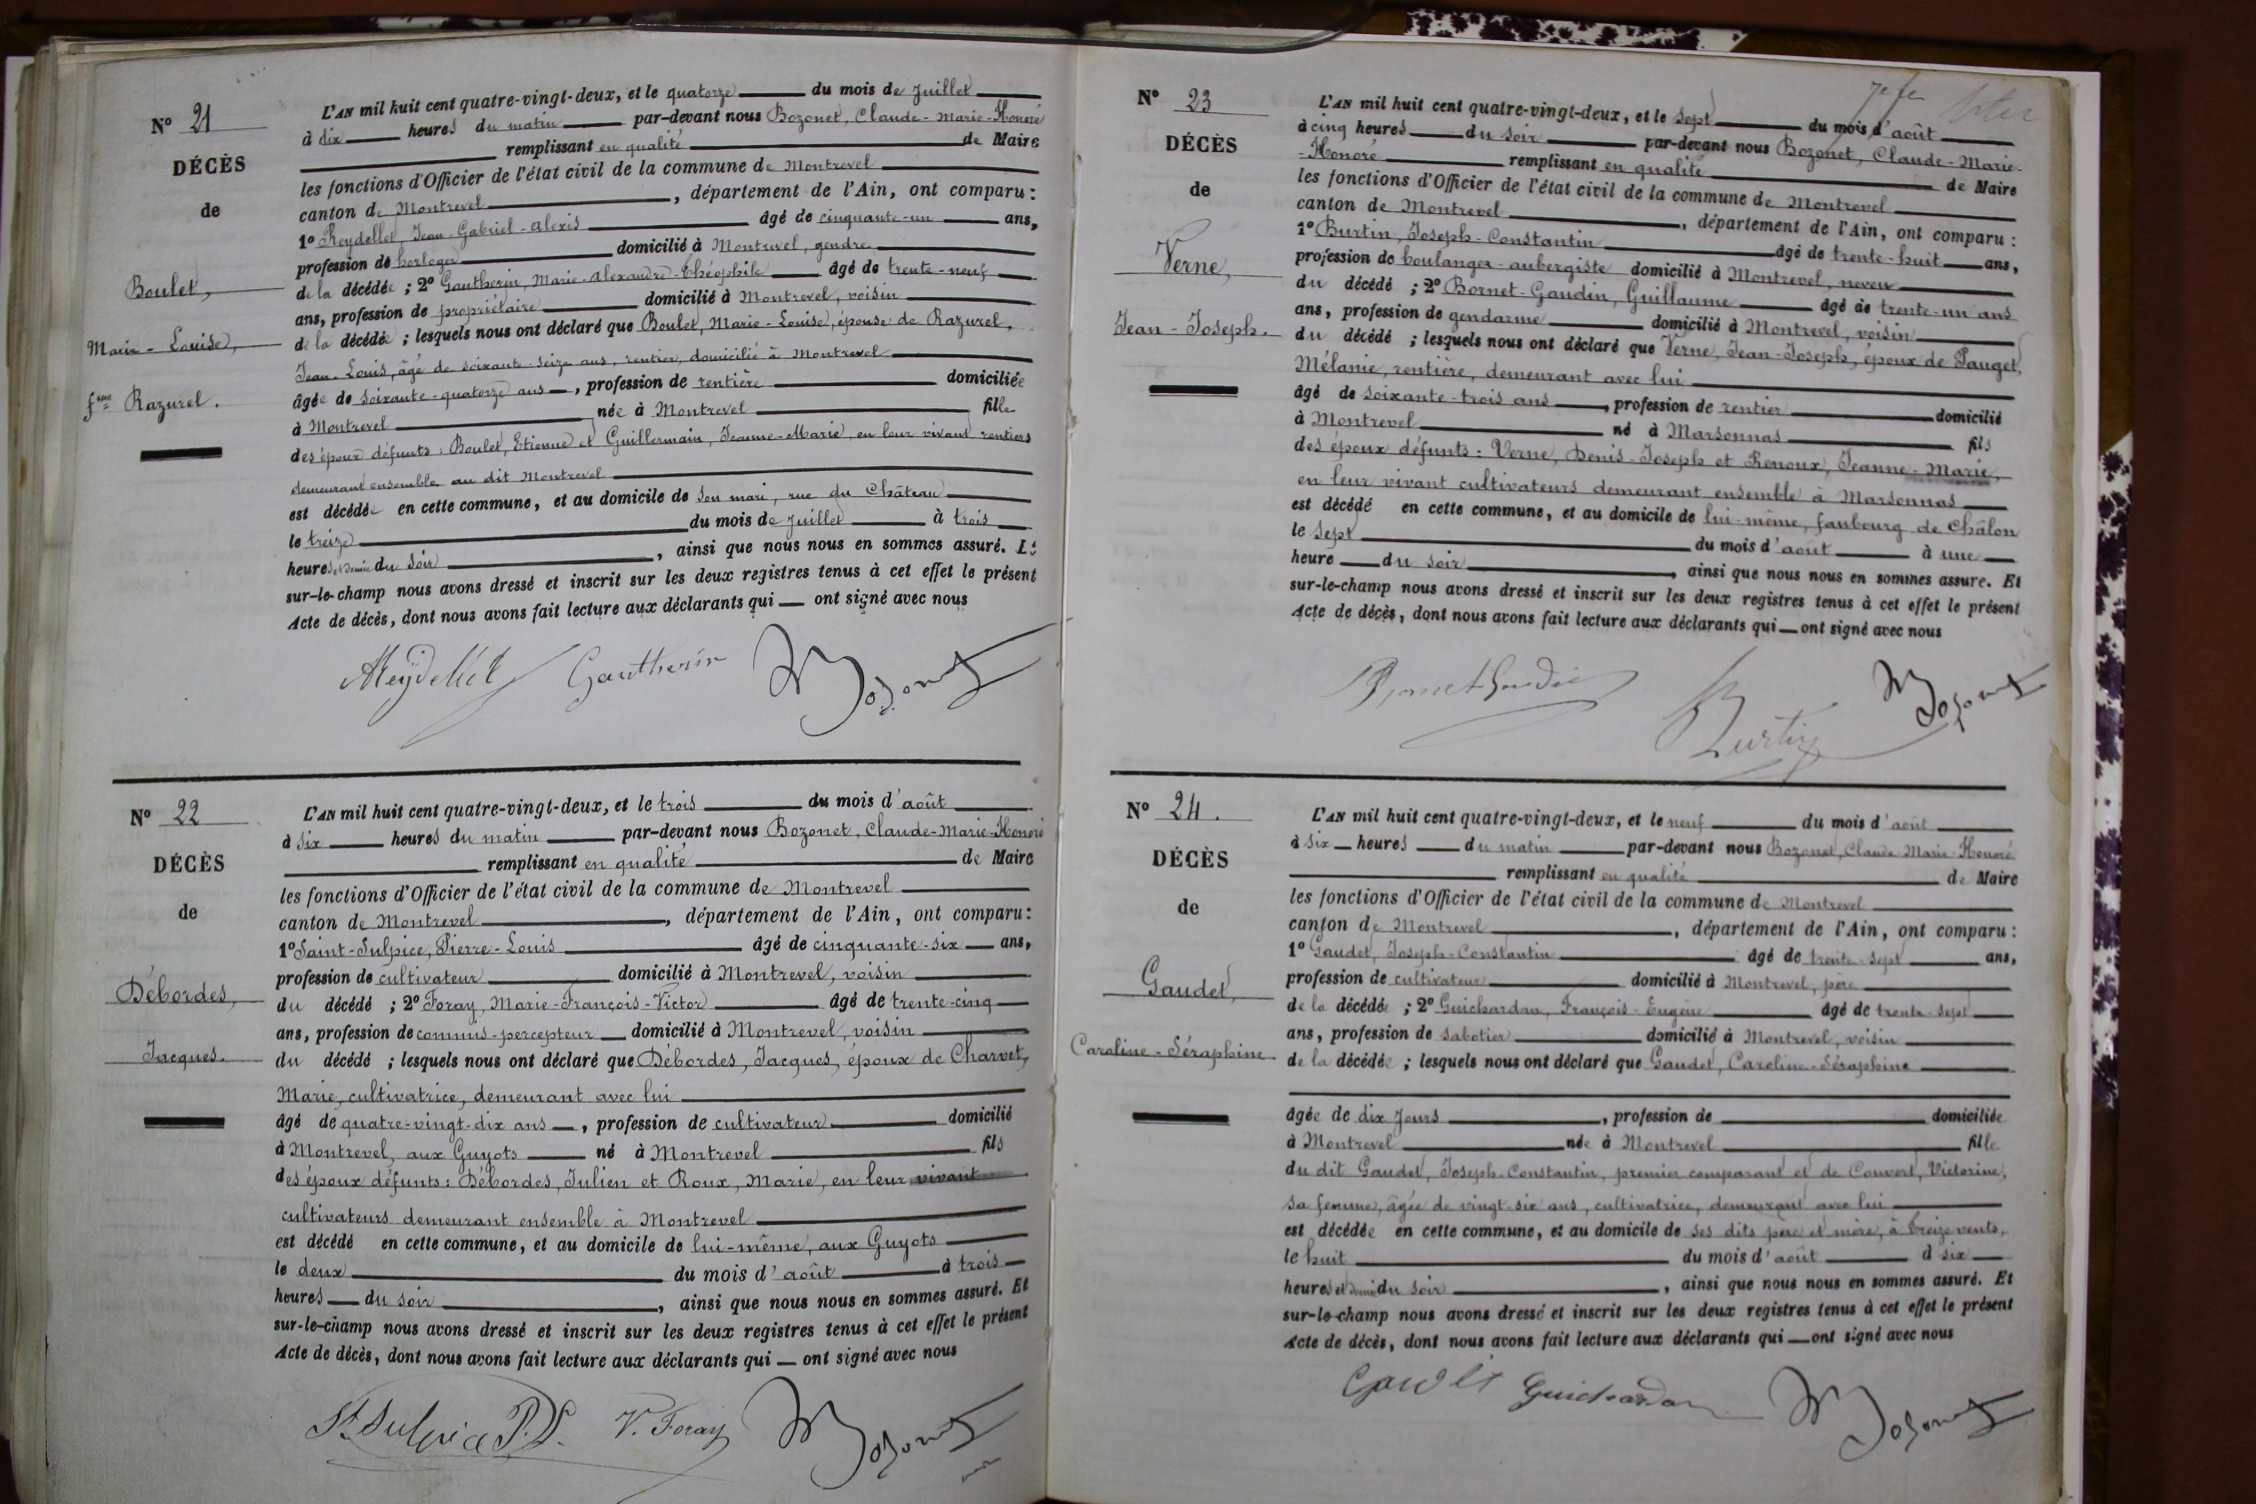 N° 21
DÉCÈS
de
Boulet,
Marie-Louise,
fme Razurel.
L'AN mil huit cent quatre-vingt-deux, et le quatorze du mois de Juillet
à dix heures du matin par-devant nous Bozonet, Claude-Marie-Honoré
remplissant en qualité de Maire
les fonctions d'Officier de l'état civil de la commune de Montrevel
canton de Montrevel, département de l'Ain, ont comparu :
1° Reydellet, Jean-Gabriel-Alexis âgé de cinquante-un ans,
profession de horloger domicilié à Montrevel, gendre
de la décédée ; 2° Gautherin, Marie-Alexandre-Théophile âgé de trente-neuf
ans, profession de propriétaire domicilié à Montrevel, voisin
de la décédée ; lesquels nous ont déclaré que Boulet, Marie-Louise, épouse de Razurel,
Jean-Louis, âgé de soixante-seize ans, rentier, domicilié à Montrevel
âgée de soixante-quatorze ans, profession de rentière domiciliée
à Montrevel née à Montrevel fille
des époux défunts : Boulet, Etienne et Guillermain, Jeanne-Marie, en leur vivant rentiers
demeurant ensemble au dit Montrevel
est décédée en cette commune, et au domicile de son mari, rue du Château
le treize du mois de Juillet à trois
heures et demie du soir, ainsi que nous nous en sommes assuré. Et
sur-le-champ nous avons dressé et inscrit sur les deux registres tenus à cet effet le présent
Acte de décès, dont nous avons fait lecture aux déclarants qui ont signé avec nous
AReydellet Gautherin Bozonet
N° 22
DÉCÈS
de
Débordes,
Jacques.
L'AN mil huit cent quatre-vingt-deux, et le trois du mois d'août
à six heures du matin par-devant nous Bozonet, Claude-Marie-Honoré
remplissant en qualité de Maire
les fonctions d'Officier de l'état civil de la commune de Montrevel
canton de Montrevel, département de l'Ain, ont comparu :
1° Saint-Sulpice, Pierre-Louis âgé de cinquante-six ans,
profession de cultivateur domicilié à Montrevel, voisin
du décédé ; 2° Foray, Marie-François-Victor âgé de trente-cinq
ans, profession de commis-percepteur domicilié à Montrevel, voisin
du décédé ; lesquels nous ont déclaré que Débordes, Jacques, époux de Charvet,
Marie, cultivatrice, demeurant avec lui
âgé de quatre-vingt-dix ans, profession de cultivateur domicilié
à Montrevel, aux Guyots né à Montrevel fils
des époux défunts : Débordes, Julien et Roux, Marie, en leur vivant
cultivateurs demeurant ensemble à Montrevel
est décédé en cette commune, et au domicile de lui-même, aux Guyots
le deux du mois d'août à trois
heures du soir, ainsi que nous nous en sommes assuré. Et
sur-le-champ nous avons dressé et inscrit sur les deux registres tenus à cet effet le présent
Acte de décès, dont nous avons fait lecture aux déclarants qui ont signé avec nous
St Sulpice P.L. V. Foray Bozonet
N° 23
DÉCÈS
de
Verne,
Jean-Joseph.
L'AN mil huit cent quatre-vingt-deux, et le sept du mois d'août
à cinq heures du soir par-devant nous Bozonet, Claude-Marie-
-Honoré remplissant en qualité de Maire
les fonctions d'Officier de l'état civil de la commune de Montrevel
canton de Montrevel, département de l'Ain, ont comparu :
1° Burtin, Joseph-Constantin âgé de trente-huit ans,
profession de boulanger-aubergiste domicilié à Montrevel, neveu
du décédé ; 2° Bornet-Gaudin, Guillaume âgé de trente-un ans
ans, profession de gendarme domicilié à Montrevel, voisin
du décédé ; lesquels nous ont déclaré que Verne, Jean-Joseph, époux de Pauget,
Mélanie, rentière, demeurant avec lui
âgé de soixante-trois ans, profession de rentier domicilié
à Montrevel né à Marsonnas fils
des époux défunts : Verne, Denis-Joseph et Renoux, Jeanne-Marie,
en leur vivant cultivateurs demeurant ensemble à Marsonnas
est décédé en cette commune, et au domicile de lui-même, faubourg de Châlon
le sept du mois d'août à une
heure du soir, ainsi que nous nous en sommes assuré. Et
sur-le-champ nous avons dressé et inscrit sur les deux registres tenus à cet effet le présent
Acte de décès, dont nous avons fait lecture aux déclarants qui ont signé avec nous
Burtin Bozonet
N° 24.
DÉCÈS
de
Gaudet,
Caroline-Séraphine
L'AN mil huit cent quatre-vingt-deux, et le neuf du mois d'août
à six heures du matin par-devant nous Bozonet, Claude-Marie-Honoré
remplissant en qualité de Maire
les fonctions d'Officier de l'état civil de la commune de Montrevel
canton de Montrevel, département de l'Ain, ont comparu :
1° Gaudet, Joseph-Constantin âgé de trente-sept ans,
profession de cultivateur domicilié à Montrevel, père
de la décédée ; 2° Guichardan, François-Eugène âgé de trente-sept
ans, profession de sabotier domicilié à Montrevel, voisin
de la décédée ; lesquels nous ont déclaré que Gaudet, Caroline-Séraphine
âgée de dix jours, profession de domiciliée
à Montrevel née à Montrevel fille
du dit Gaudet, Joseph-Constantin, premier comparant et de Convert, Victorine,
sa femme, âgée de vingt-six ans, cultivatrice, demeurant avec lui
est décédée en cette commune, et au domicile de ses dits père et mère, à Treize vents,
le huit du mois d'août à six
heures et demie du soir, ainsi que nous nous en sommes assuré. Et
sur-le-champ nous avons dressé et inscrit sur les deux registres tenus à cet effet le présent
Acte de décès, dont nous avons fait lecture aux déclarants qui ont signé avec nous
Guichardan Bozonet